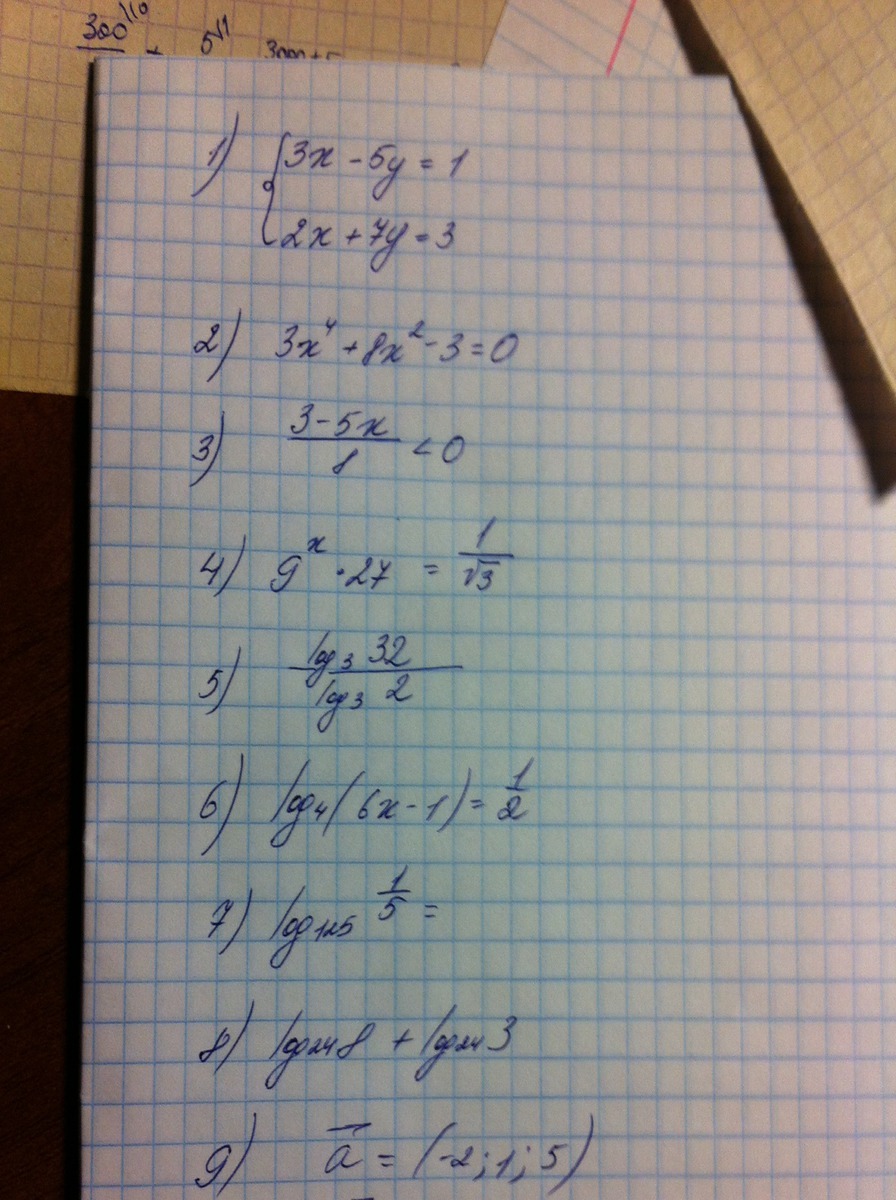 1) {3x - 5y = 1
2x + 7y = 3
2) 3x⁴ + 8x² - 3 = 0
3) (3 - 5x)/8 < 0
4) 9ˣ · 27 = 1/√3
5) log₃ 32 / log₃ 2
6) log₄(6x - 1) = 1/2
7) log₁₂₅ 1/5 =
8) log₂₄ 8 + log₂₄ 3
9) a⃗ = (-2; 1; 5)